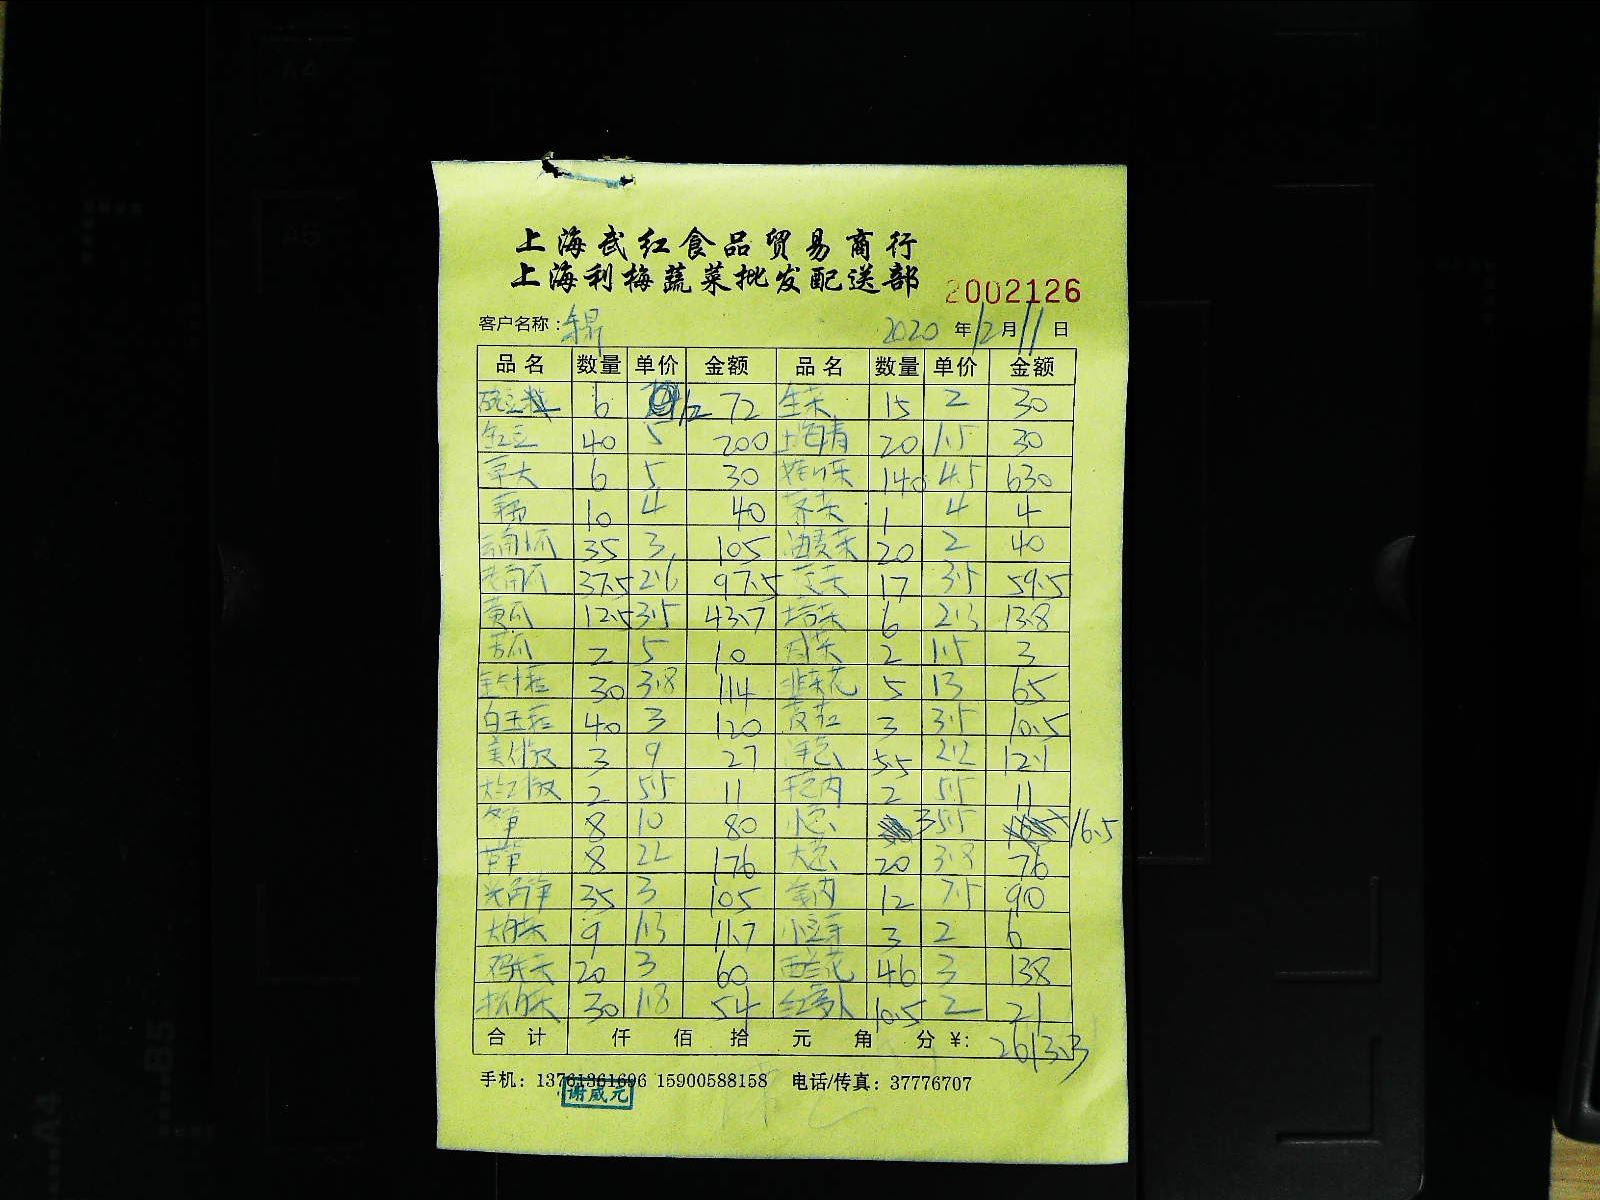 上海武红食品贸易商行
上海利梅蔬菜批发配送部 2002126
客户名称： 2020 年 12 月 11 日
品名 数量 单价 金额 品名 数量 单价 金额
6 12 72 生菜 15 2 30
40 5 200 上海青 20 1.5 30
6 5 30 140 4.5 630
10 4 40 1 4 4
35 3 105 油麦菜 20 2 40
老南瓜 37.5 2.6 97.5 17 3.5 59.5
黄瓜 12.5 3.5 43.7 塔菜 6 2.3 13.8
苦瓜 2 5 10 2 1.5 3
金针菇 30 3.8 114 韭菜花 5 13 65
白玉菇 40 3 120 3 3.5 10.5
美人椒 3 9 27 洋葱 5.5 2.2 12.1
大红椒 2 5.5 11 2 5.5 11
8 10 80 小葱 3 5.5 16.5
8 22 176 大葱 20 3.8 76
35 3 105 12 7.5 90
9 1.3 11.7 小豆芽 3 2 6
鸡毛菜 20 3 60 西兰花 46 3 138
30 1.8 54 红萝卜 10.5 2 21
合计 仟 佰 拾 元 角 分 ¥: 2613.3
手机：13761361696 15900588158 电话/传真：37776707
谢咸元